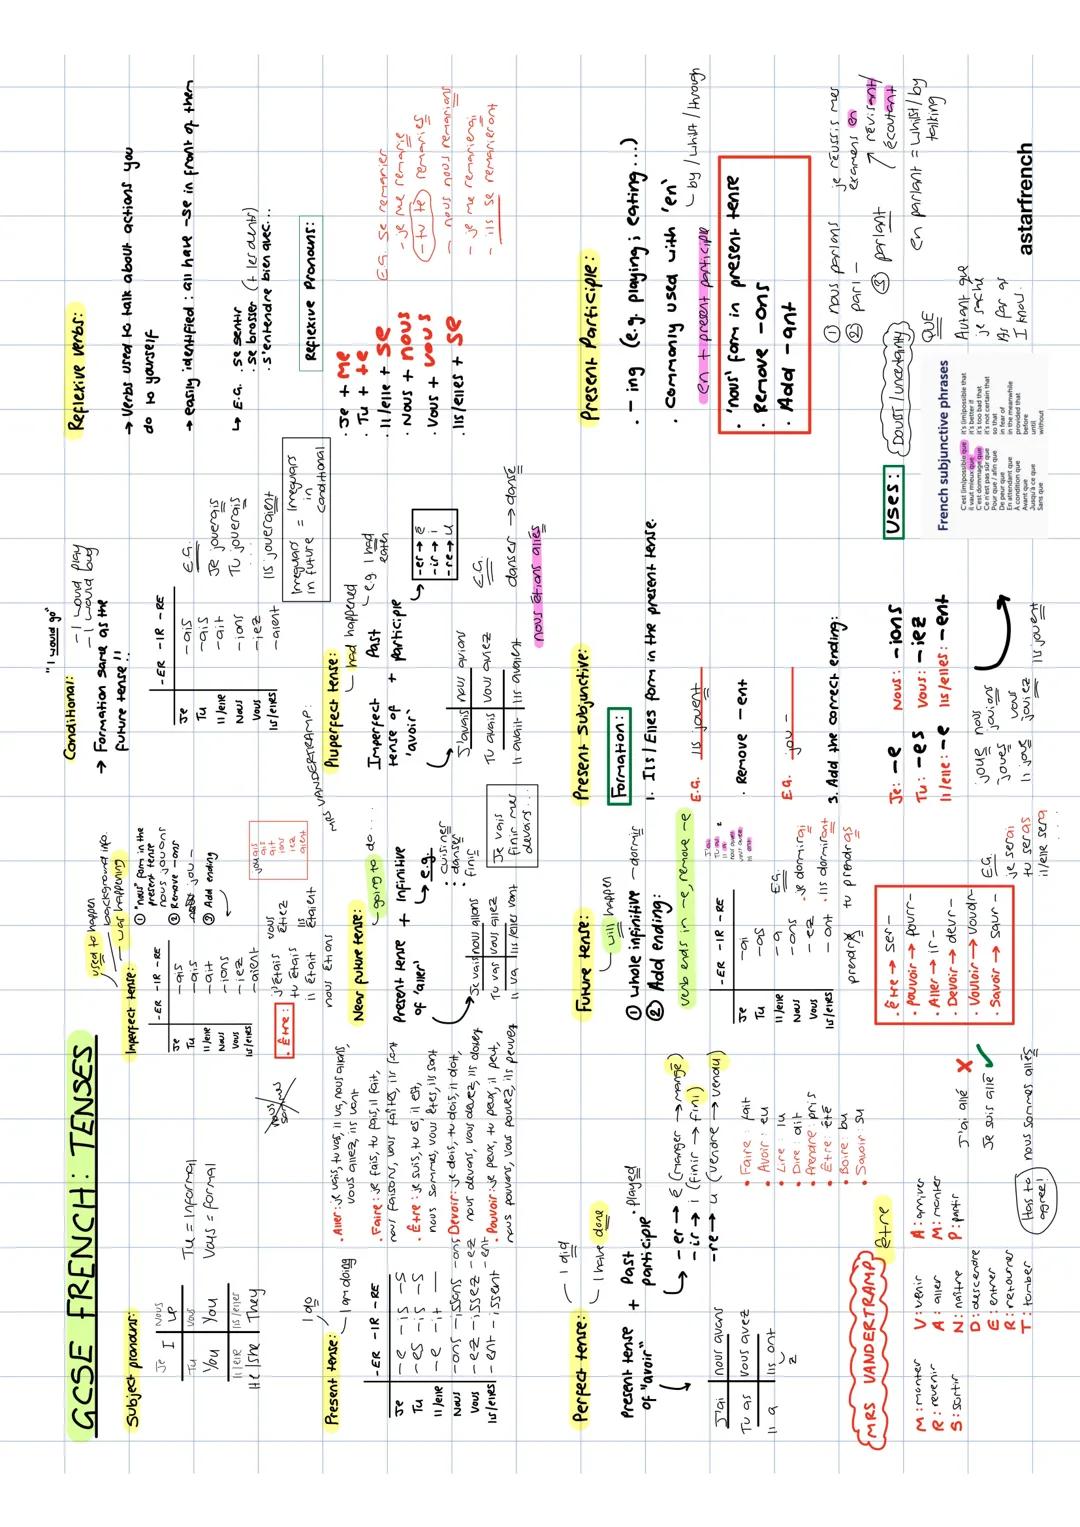 GCSE FRENCH: TENSES
Subject pronouns:
Je
I
Nous
we
Tu
You
Vous
You
Il/elle
He/she
Ils/elles
They
Tu = Informal
Vous = formal
Present tense:
I do
I am doing
-ER -IR -RE
Je -e -is -s
Tu -es -is -s
Il/elle -e -it —
Nous -ons -issons -ons
Vous -ez -issez -ez
Ils/elles -ent -issent -ent
• Aller: je vais, tu vas, il va, nous allons,
vous allez, ils vont
• Faire: je fais, tu fais, il fait,
nous faisons, vous faites, ils font
• Être: je suis, tu es, il est,
nous sommes, vous êtes, ils sont
Devoir: je dois, tu dois, il doit,
nous devons, vous devez, ils doivent
• Pouvoir: je peux, tu peux, il peut,
nous pouvons, vous pouvez, ils peuvent
Perfect tense:
I did
I have done
Present tense + Past
of "avoir" participle
• played
J'ai nous avons
Tu as vous avez
Il a Ils ont
z
-er → é (manger → mangé)
-ir → i (finir → fini)
-re → u (vendre → vendu)
• Faire: fait
• Avoir: eu
• Lire: lu
• Dire: dit
• Prendre: pris
• Être: été
• Boire: bu
• Savoir: su
MRS VANDERTRAMP
être
M: monter
R: revenir
S: sortir
V: venir
A: aller
N: naître
D: descendre
E: entrer
R: retourner
T: tomber
A: arriver
M: monter
P: partir
J'ai allé ✗
Je suis allé ✓
Has to
agree!
nous sommes allés
Imperfect tense:
used to happen
background info
was happening
-ER -IR -RE
Je -ais
Tu -ais
Il/elle -ait
Nous -ions
Vous -iez
Ils/elles -aient
① "nous" form in the
present tense
nous jouons
② Remove -ons
jou -
③ Add ending
jouais
ais
ait
ions
iez
aient
• Être:
j'étais
tu étais
il était
nous étions
vous
étiez
ils
étaient
Near future tense:
going to do...
Present tense + Infinitive
of 'aller'
e.g.
• cuisiner
• danser
finir
Je vais nous allons
Tu vas vous allez
Il va Ils/elles vont
Je vais
finir mes
devoirs...
Future tense:
will happen
① whole infinitive - dormir
② Add ending:
verb ends in -e, remove -e
-ER -IR -RE
Je -ai
Tu -as
Il/elle -a
Nous -ons
Vous -ez
Ils/elles -ont
J'ai
nous avons
vous avez
E.G.
• je dormirai
• ils dormiront
tu prendras
• Être → ser-
• Pouvoir → pourr-
• Aller → ir-
• Devoir → devr-
• Vouloir → voudr-
• Savoir → saur-
E.G.
je serai
tu seras
il/elle sera
Conditional:
"I would go"
- I would play
- I would buy
→ Formation same as the
future tense!!
-ER -IR -RE
Je -ais
Tu -ais
Il/elle -ait
Nous -ions
Vous -iez
Ils/elles -aient
E.G.
Je jouerais
Tu jouerais
...
Ils joueraient
Irregulars
in future
=
Irregulars
in
conditional
MRS VANDERTRAMP:
Pluperfect tense:
had happened
e.g. I had
eaten
Imperfect
tense of
'avoir'
+
Past
participle
-er → é
-ir → i
-re → u
J'avais nous avions
Tu avais vous aviez
Il avait Ils avaient
E.G.
danser → dansé
nous étions allés
Present Subjunctive:
Formation:
1. Ils/Elles form in the present tense.
E.G. Ils jouent
• Remove -ent
E.G. jou -
3. Add the correct ending:
Je: -e Nous: -ions
Tu: -es Vous: -iez
Il/elle: -e Ils/elles: -ent
joue
joues
il joue
nous
jouions
vous
jouiez
Ils jouent
Uses:
Doubt/uncertainty
French subjunctive phrases
C'est (im)possible que it's (im)possible that
Il vaut mieux que it's better if
C'est dommage que it's too bad that
Ce n'est pas sûr que it's not certain that
Pour que / afin que so that
De peur que in fear of
En attendant que in the meanwhile
À condition que provided that
Avant que before
Jusqu'à ce que until
Sans que without
QUE
Autant que
je sache
As far as
I know.
Reflexive verbs:
→ Verbs used to talk about actions you
do to yourself
→ easily identified: all have -se in front of them
↳ E.G. • se sentir
• se brosser (+ les dents)
• s'entendre bien avec...
Reflexive Pronouns:
• Je + me
• Tu + te
• Il/elle + se
• Nous + nous
• Vous + vous
• Ils/elles + se
E.G. se remarier
- je me remarie
- tu te remaries
- nous nous remarions
- je me remarierai
- ils se remarieront
Present Participle:
• - ing (e.g. playing; eating...)
• commonly used with 'en'
by / whilst / through
en + present participle
• 'nous' form in present tense
• Remove -ons
• Add -ant
① nous parlons
② parl -
③ parlant
je réussis mes
examens en
révisant/
écoutant
en parlant = whilst/by
talking
astarfrench